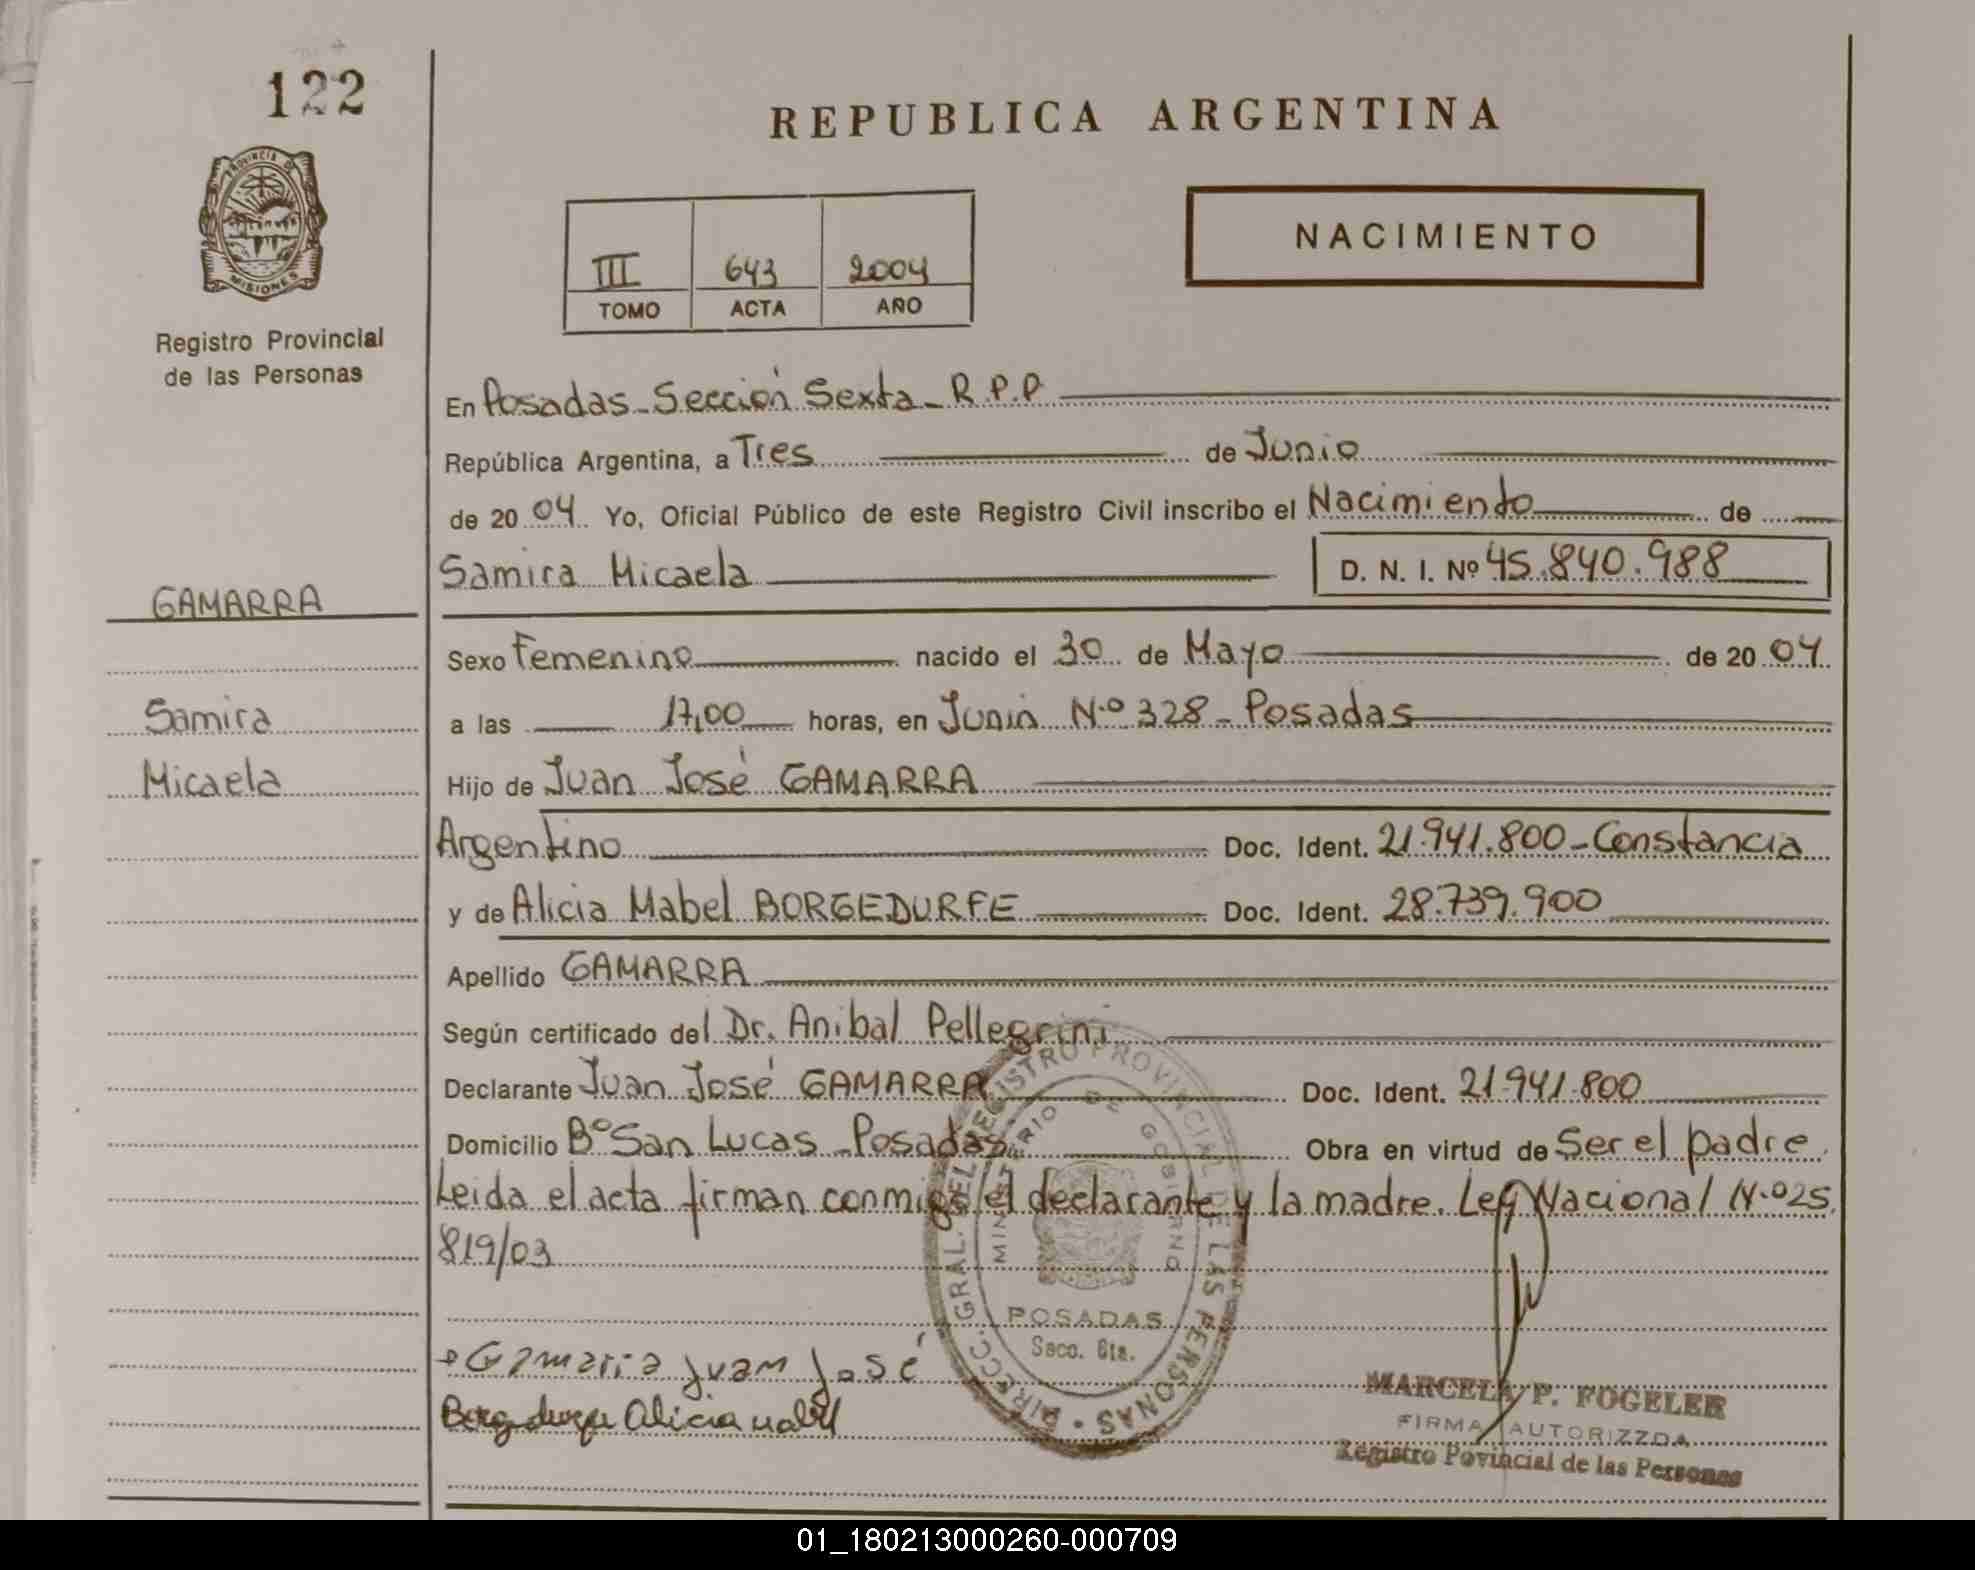 122
REPUBLICA ARGENTINA
PROVINCIA DE
MISIONES
NACIMIENTO
III 643 2004
TOMO ACTA AÑO
Registro Provincial
de las Personas
En Posadas - Sección Sexta - R.P.P
República Argentina, a Tres de Junio
de 2004 Yo, Oficial Público de este Registro Civil inscribo el Nacimiento de
Samira Micaela D. N. I. Nº 45.840.988
GAMARRA
Sexo Femenino nacido el 30 de Mayo de 2004
Samira
a las 17,00 horas, en Junin N.º 328 - Posadas
Micaela
Hijo de Juan José GAMARRA
Argentino Doc. Ident. 21.941.800 - Constancia
y de Alicia Mabel BORGEDURFE Doc. Ident. 28.739.900
Apellido GAMARRA
Según certificado del Dr. Anibal Pellegrini
Declarante Juan José GAMARRA Doc. Ident. 21.941.800
Domicilio Bº San Lucas - Posadas Obra en virtud de Ser el padre
Leida el acta firman conmigo el declarante y la madre. Ley Nacional N.º 25.
819/03
DIRECC. GRAL. DEL REGISTRO PROVINCIAL DE LAS PERSONAS
MINISTERIO DE GOBIERNO
POSADAS
Secc. 6ta.
Gamarra Juan José
Alicia Mabel
MARCELA P. FOGELER
FIRMA AUTORIZZDA
Registro Povincial de las Personas
01_180213000260-000709